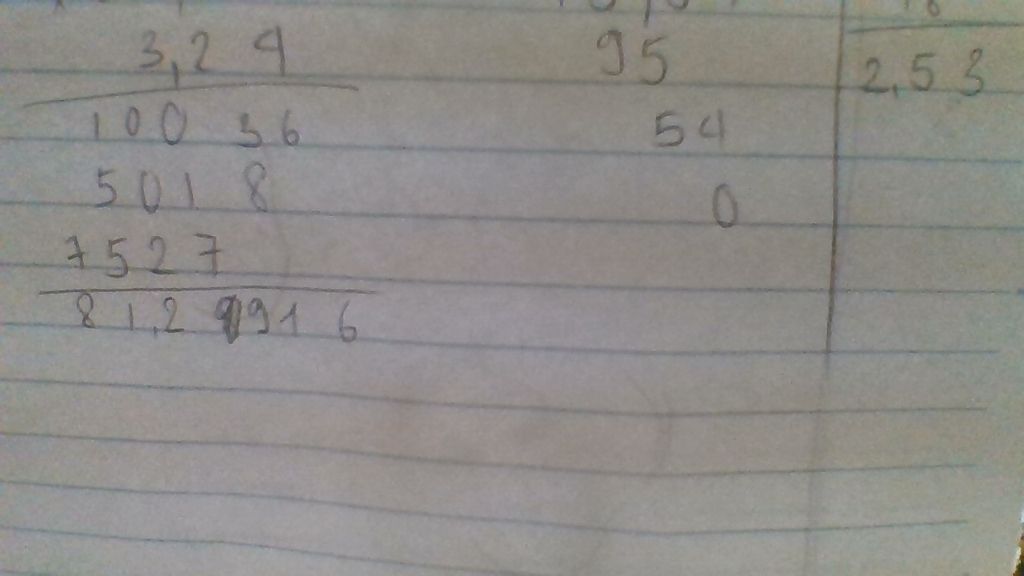 3,24
10036
5018
7527
81,29916
95
54
0
2,53